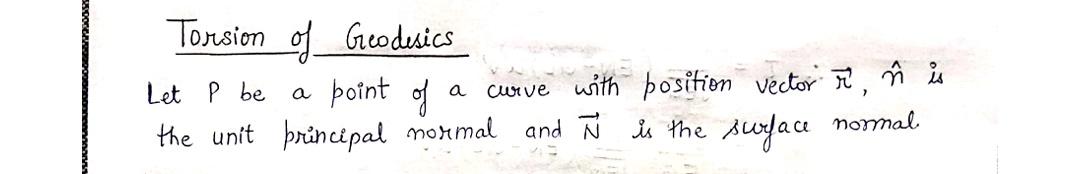 Torsion of Geodesics
Let P be a point of a curve with position vector r⃗, n̂ is
the unit principal normal and N⃗ is the surface normal.